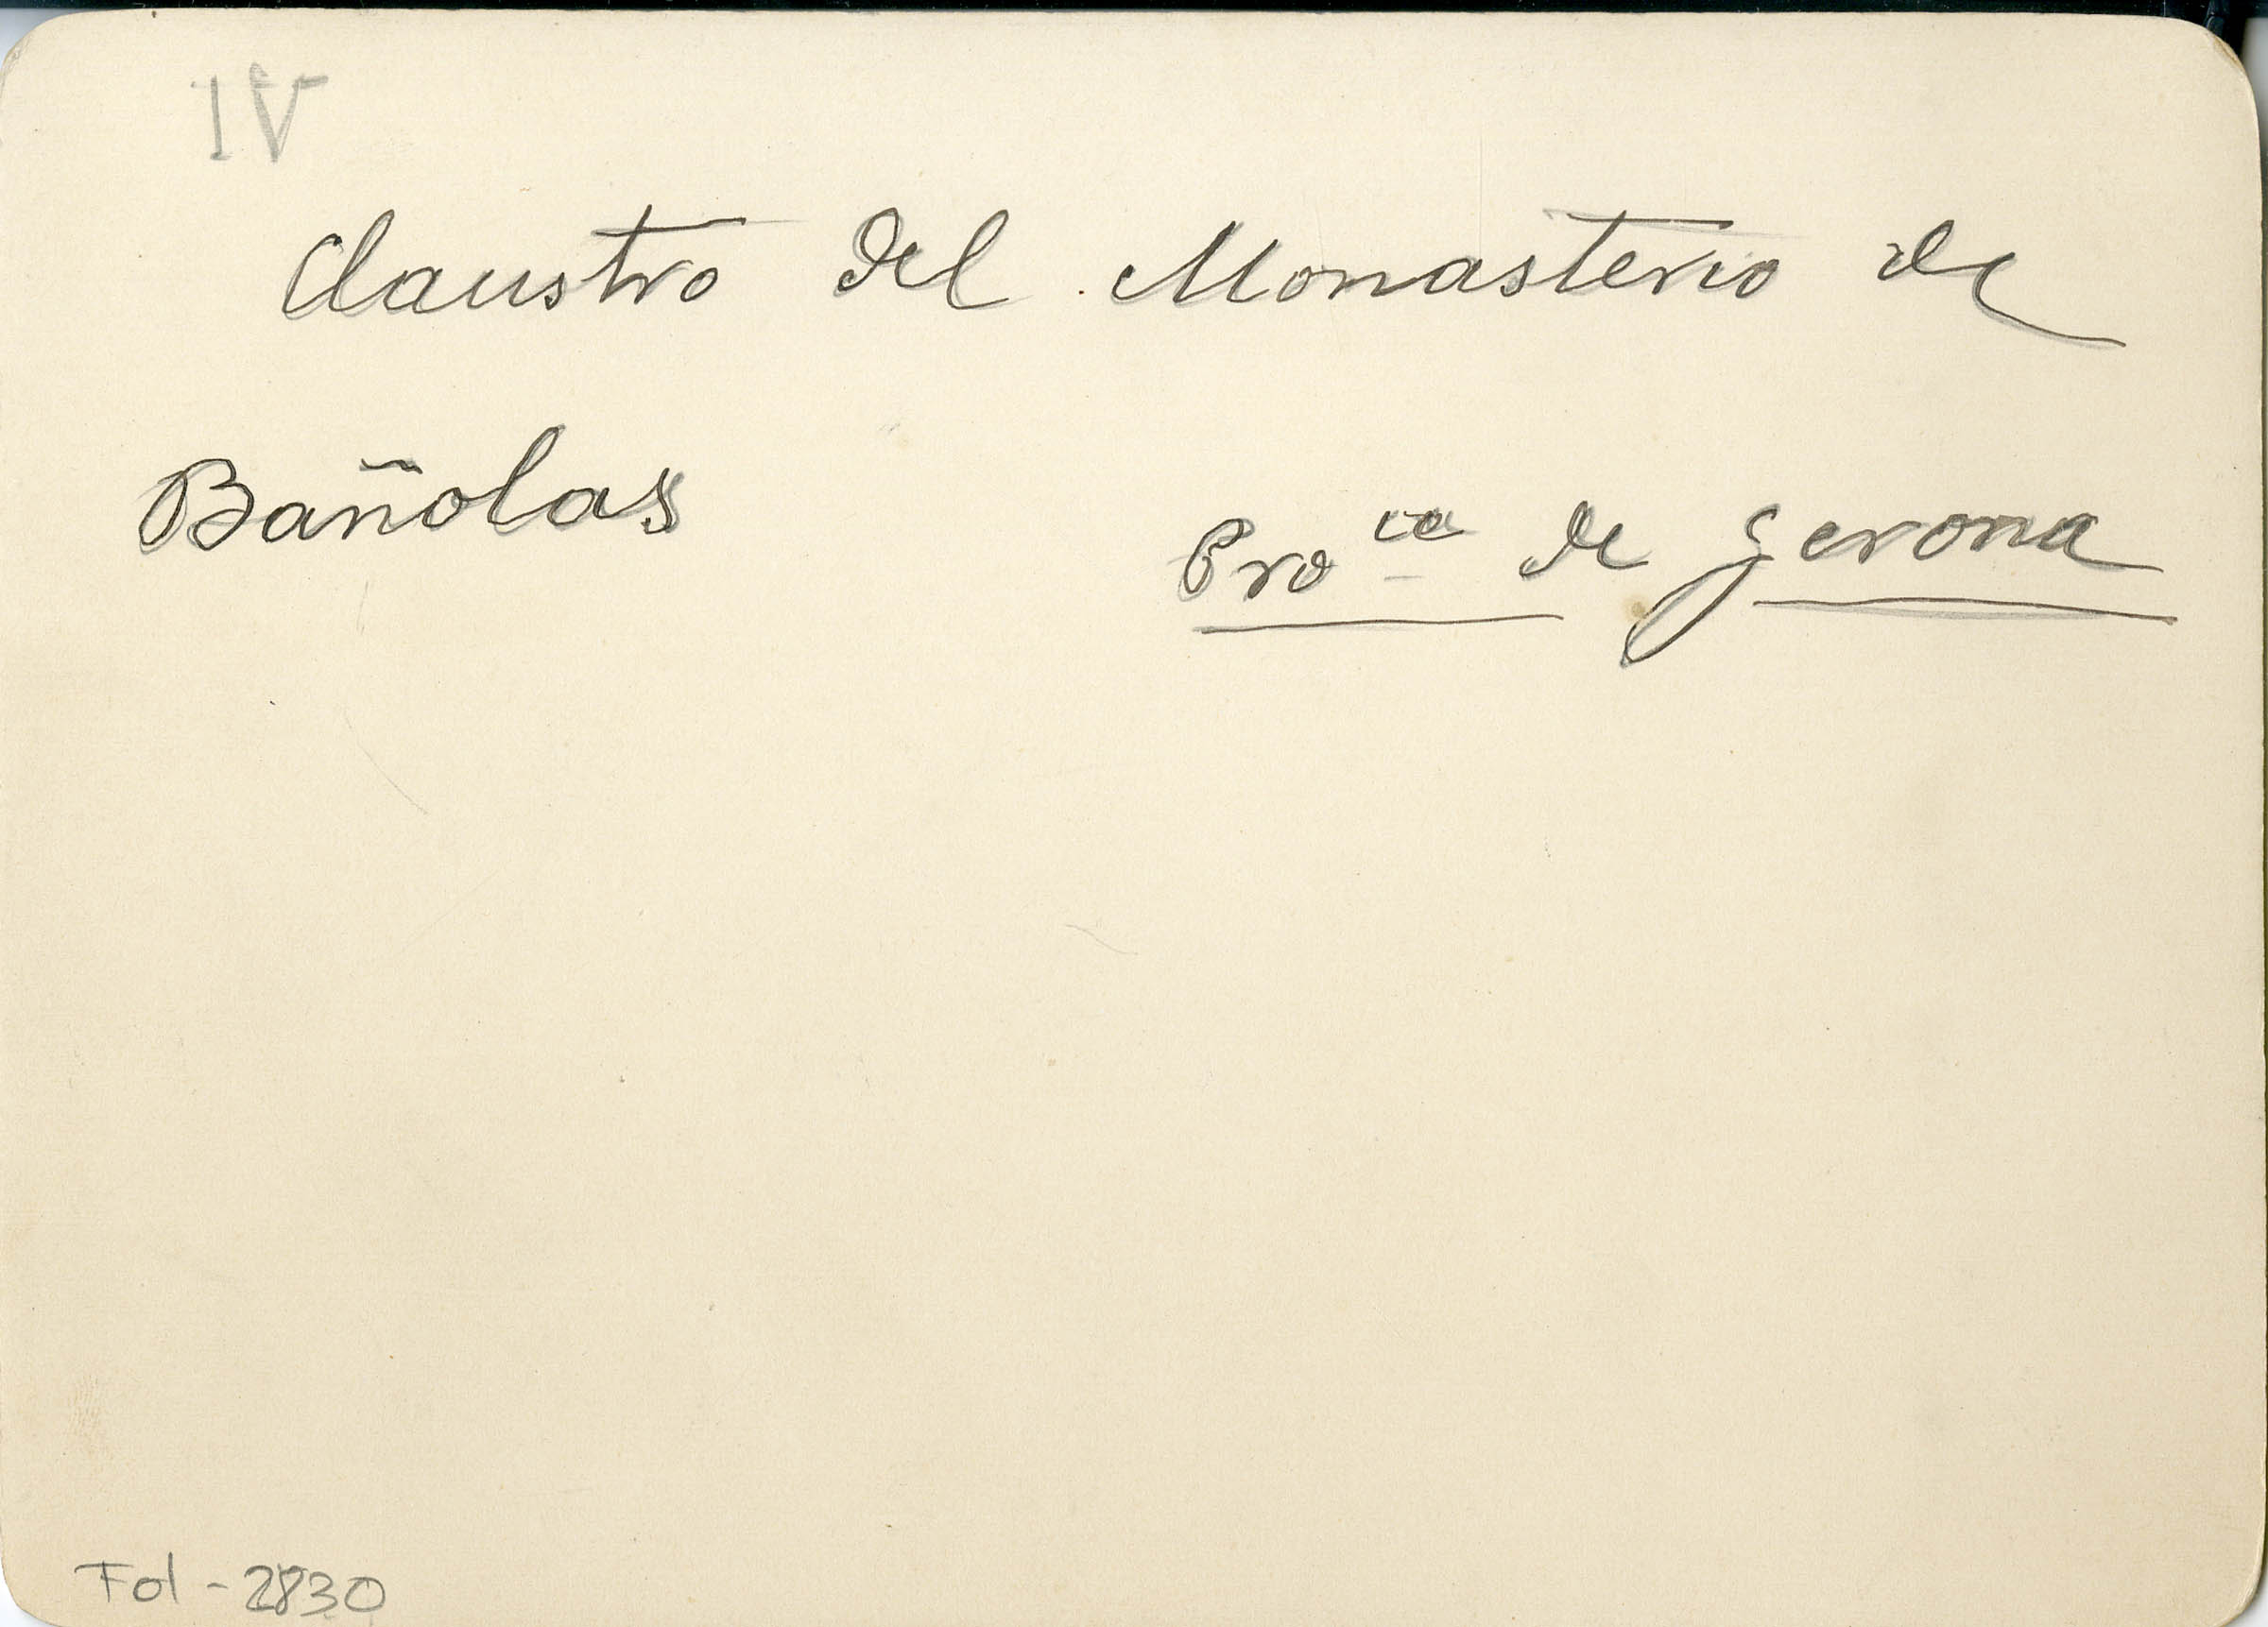 IV
Claustro del Monasterio de
Bañolas
Pro<sup>ca</sup> de Gerona
Fol - 2830